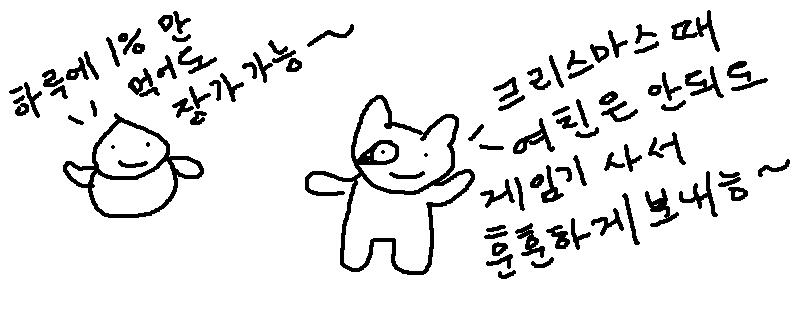 하루에 1% 만
먹어도
장가 가능~
크리스마스 때
여친은 안되도
게임기 사서
훈훈하게 보내능~